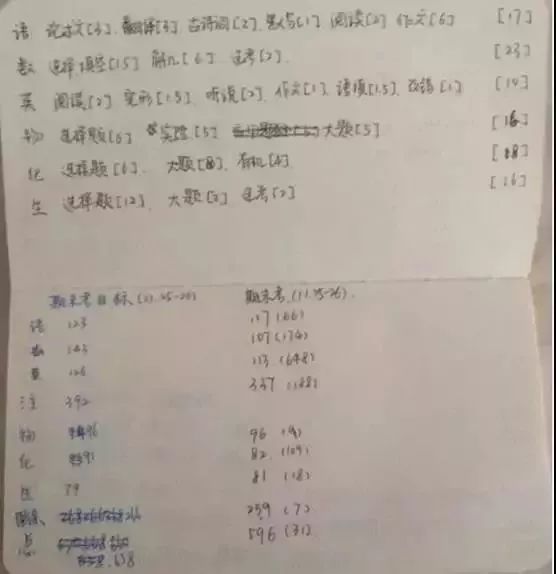 语 论述文[3]. 翻译[3] 古诗词[2]. 默写[1] 阅读[2] 作文[6] [17]
数 选择填空[15] 解几[6]. 选考[2]. [23]
英 阅读[2] 完形[1.5]. 听说[2]. 作文[1]. 语填[1.5]. 改错[1] [10]
物 选择题[6] 实验[5] 大题[5] [16]
化 选择题[6]. 大题[8]. 有机[4]. [18]
生 选择题[12]. 大题[2] 选考[2] [16]
期末考目标 (11.25-26) 期末考 (11.25-26).
语 123 117 (66)
数 143 107 (174)
英 126 113 (648)
注 392 337 (188)
物 96 96 (4)
化 91 82 (109)
生 79 81 (18)
理综 266 259 (7)
总 658 596 (31)